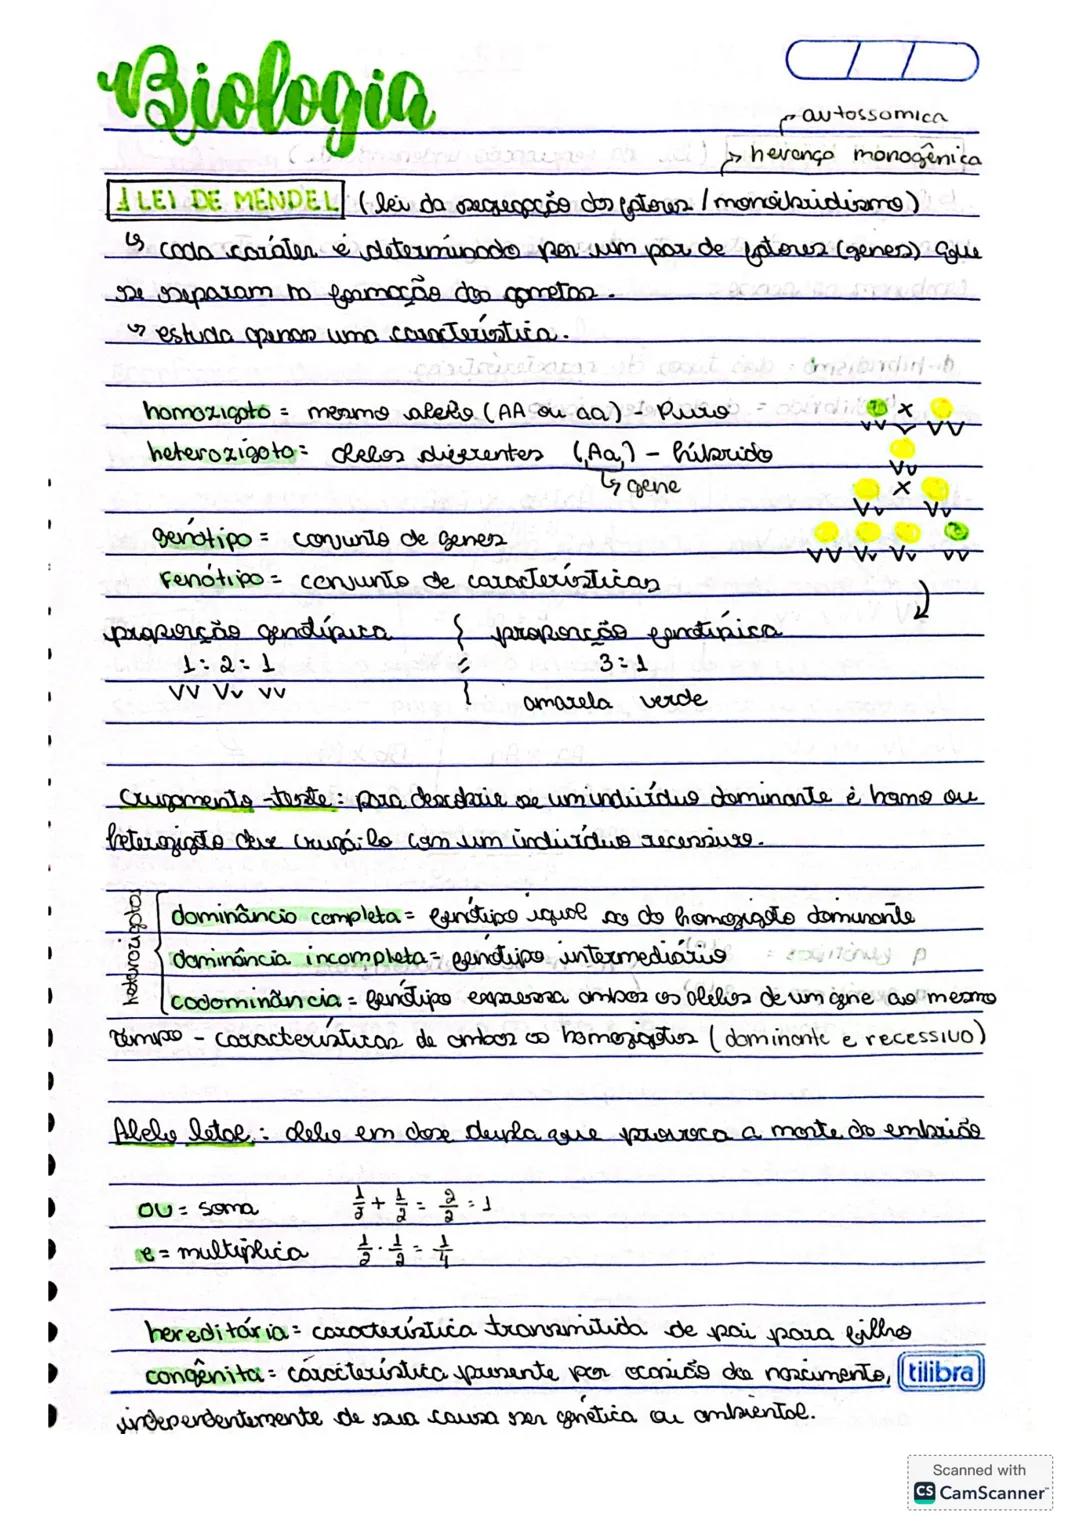 Biologia
autossomica
herança monogênica
1 LEI DE MENDEL (lei da segregação dos fatores / monoibridismo)
↳ cada caráter é determinado por um par de fatores (genes) que
se separam na formação dos gametas.
↳ estuda apenas uma característica.
homozigoto = mesmo alelo (AA ou aa) - Puro
vv x VV
heterozigoto = alelos diferentes (Aa) - híbrido
Vv
↳ gene
x
Vv Vv
genótipo = conjunto de genes
VV Vv Vv vv
Fenótipo = conjunto de características
proporção genotípica
1:2:1
VV Vv vv
proporção fenotípica
3:1
amarela verde
Cruzamento-teste: para descobrir se um indivíduo dominante é homo ou
heterozigoto deve cruzá-lo com um indivíduo recessivo.
heterozigoto
dominância completa = fenótipo igual ao do homozigoto dominante
dominância incompleta = fenótipo intermediário
codominância = fenótipo expressa ambos os alelos de um gene ao mesmo
tempo - características de ambos os homozigotos (dominante e recessivo)
Alelo letal: alelo em dose dupla que provoca a morte do embrião
ou = soma 1/2 + 1/2 = 2/2 = 1
e = multiplica 1/2 . 1/2 = 1/4
hereditária = característica transmitida de pai para filho
congênita = característica presente por ocasião do nascimento,
tilibra
independentemente de sua causa ser genética ou ambiental.
Scanned with
CS CamScanner